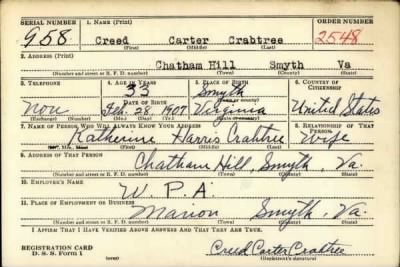 SERIAL NUMBER 1. NAME (Print) ORDER NUMBER
958 Creed Carter Crabtree 2548
(First) (Middle) (Last)
2. ADDRESS (Print)
Chatham Hill Smyth Va
(Number and street or R. F. D. number) (Town) (County) (State)
3. TELEPHONE 4. AGE IN YEARS 5. PLACE OF BIRTH 6. COUNTRY OF CITIZENSHIP
33 Smyth
DATE OF BIRTH (Town or county)
Non Feb. 28, 1907 Virginia United States
(Exchange) (Number) (Mo.) (Day) (Yr.) (State or country)
7. NAME OF PERSON WHO WILL ALWAYS KNOW YOUR ADDRESS 8. RELATIONSHIP OF THAT PERSON
Katherine Harris Crabtree Wife
(Mr., Mrs., Miss) (First) (Middle) (Last)
9. ADDRESS OF THAT PERSON
Chatham Hill, Smyth, Va.
(Number and street or R. F. D. number) (Town) (County) (State)
10. EMPLOYER'S NAME
W. P. A.
11. PLACE OF EMPLOYMENT OR BUSINESS
Marion Smyth, Va.
(Number and street or R. F. D. number) (Town) (County) (State)
I AFFIRM THAT I HAVE VERIFIED ABOVE ANSWERS AND THAT THEY ARE TRUE.
REGISTRATION CARD
D. S. S. Form 1 (over) Creed Carter Crabtree
(Registrant's signature)